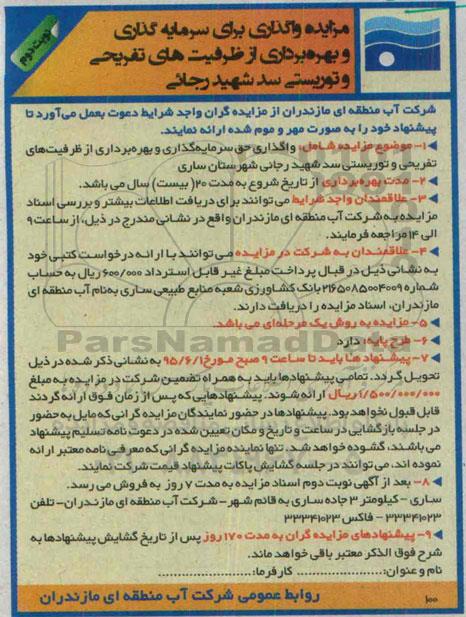 مزایده واگذاری برای سرمایه گذاری
و بهره‌برداری از ظرفیت های تفریحی
و توریستی سد شهید رجائی
نوبت دوم
شرکت آب منطقه ای مازندران از مزایده گران واجد شرایط دعوت بعمل می‌آورد تا
پیشنهاد خود را به صورت مهر و موم شده ارائه نمایند.
۱- موضوع مزایده شامل: واگذاری حق سرمایه‌گذاری و بهره‌برداری از ظرفیت‌های
تفریحی و توریستی سد شهید رجائی شهرستان ساری
۲- مدت بهره‌برداری از تاریخ شروع به مدت ۲۰( بیست) سال می باشد.
۳- علاقمندان واجد شرایط می توانند برای دریافت اطلاعات بیشتر و بررسی اسناد
مزایده به شرکت آب منطقه ای مازندران واقع در نشانی مندرج در ذیل، از ساعت ۹
الی ۱۴ مراجعه فرمایند.
۴- علاقمندان به شرکت در مزایده می توانند با ارائه درخواست کتبی خود
به نشانی ذیل در قبال پرداخت مبلغ غیر قابل استرداد ۶۰۰/۰۰۰ ریال به حساب
شماره ۲۱۶۵۰۸۵۰۰۴۰۰۹ بانک کشاورزی شعبه منابع طبیعی ساری به‌نام آب منطقه ای
مازندران، اسناد مزایده را دریافت دارند.
۵- مزایده به روش یک مرحله‌ای می باشد.
ParsNamadData
۶- طرح پایه: دارد
۷- پیشنهاد ها باید تا ساعت ۹ صبح مورخ ۹۵/۶/۱ به نشانی ذکر شده در ذیل
تحویل گردد. تمامی پیشنهادها باید به همراه تضمین شرکت در مزایده به مبلغ
۱/۵۰۰/۰۰۰/۰۰۰ ریال ارائه شوند. پیشنهادهایی که پس از زمان فوق ارائه گردند
قابل قبول نخواهد بود. پیشنهادها در حضور نمایندگان مزایده گرانی که مایل به حضور
در جلسه بازگشایی در ساعت و تاریخ و مکان تعیین شده در دعوت نامه تسلیم پیشنهاد
می باشند، گشوده خواهد شد. تنها نماینده مزایده گرانی که معرفی نامه معتبر ارائه
نموده اند، می توانند در جلسه گشایش پاکات پیشنهاد قیمت شرکت نمایند.
۸- بعد از آگهی نوبت دوم اسناد مزایده به مدت ۷ روز به فروش می رسد.
ساری - کیلومتر ۳ جاده ساری به قائم شهر- شرکت آب منطقه ای مازندران- تلفن
۳۳۳۴۱۰۲۳ - فاکس ۳۳۳۴۱۰۲۳
۹- پیشنهادهای مزایده گران به مدت ۱۷۰ روز پس از تاریخ گشایش پیشنهادها به
شرح فوق الذکر معتبر باقی خواهد ماند.
نام و عنوان:........................ کارفرما:........................
روابط عمومی شرکت آب منطقه ای مازندران
۱۰۰